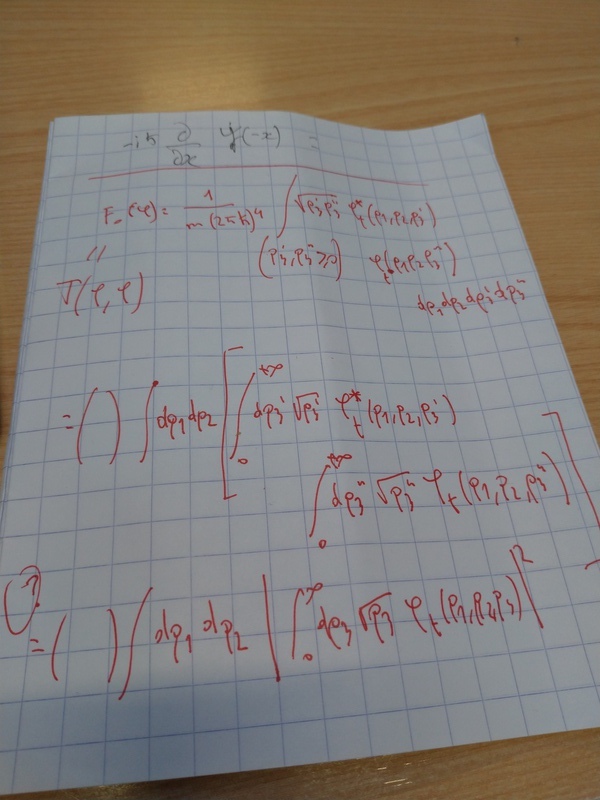 -iħ ∂/∂x φ(-x) =
F_(φ) = 1/m(2πħ)⁴ ∫ √p₃'p₃'' φ*_t(p₁,p₂,p₃')
" (p₃',p₃''≥0) φ_t(p₁p₂p₃'')
J(φ,φ) dp₁dp₂dp₃'dp₃''
= ( ) ∫ dp₁dp₂ [ ∫₀^+∞ dp₃' √p₃' φ*_t(p₁,p₂,p₃')
∫₀^+∞ dp₃'' √p₃'' φ_t(p₁,p₂,p₃'') ]
?
= ( ) ∫ dp₁dp₂ | ∫₀^∞ dp₃ √p₃ φ_t(p₁,p₂,p₃) |²